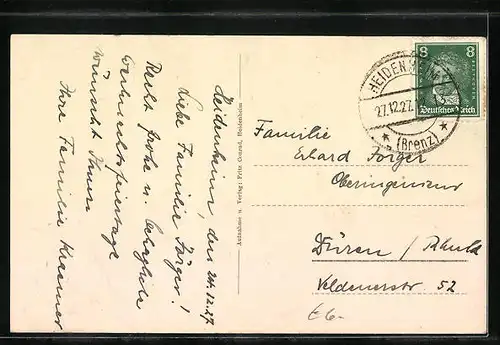 Heidenheim, den 24.12.27
Liebe Familie Jörger!
Recht frohe u. behagliche
Weihnachtsfeiertage
wünscht Ihnen
Ihre Familie Kraemer
Aufnahme u. Verlag: Fritz Conrad, Heidenheim
8 8
Deutsches Reich
HEIDENHEIM
27.12.27.
(Brenz)
Familie
Erhard Jörger
Oberingenieur
Düren / Rheinld
Veldenerstr. 52